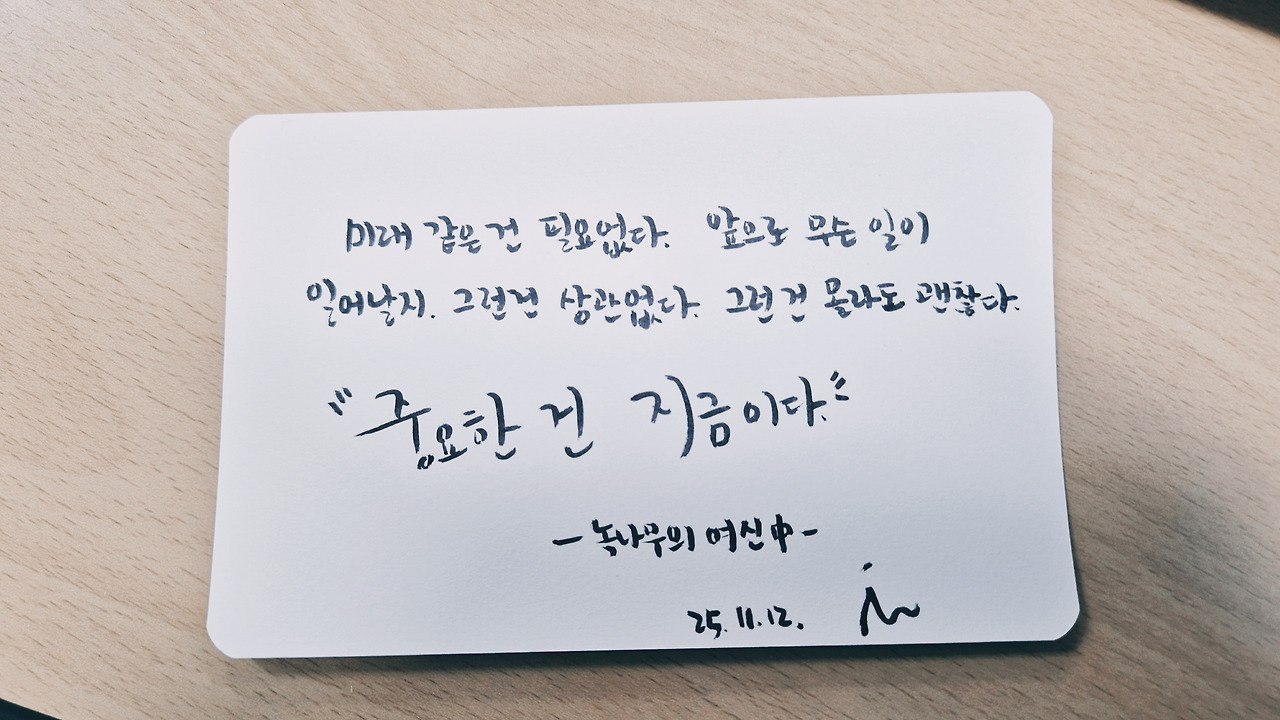 미래 같은 건 필요없다. 앞으로 무슨 일이
일어날지. 그런건 상관없다. 그런건 몰라도 괜찮다.
"중요한 건 지금이다."
- 녹나무의 여신中 -
25. 11. 12.